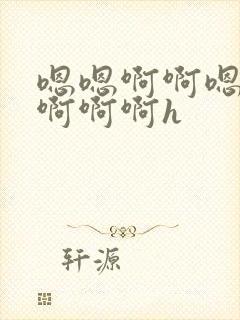 嗯嗯啊啊嗯
啊啊啊h
轩源